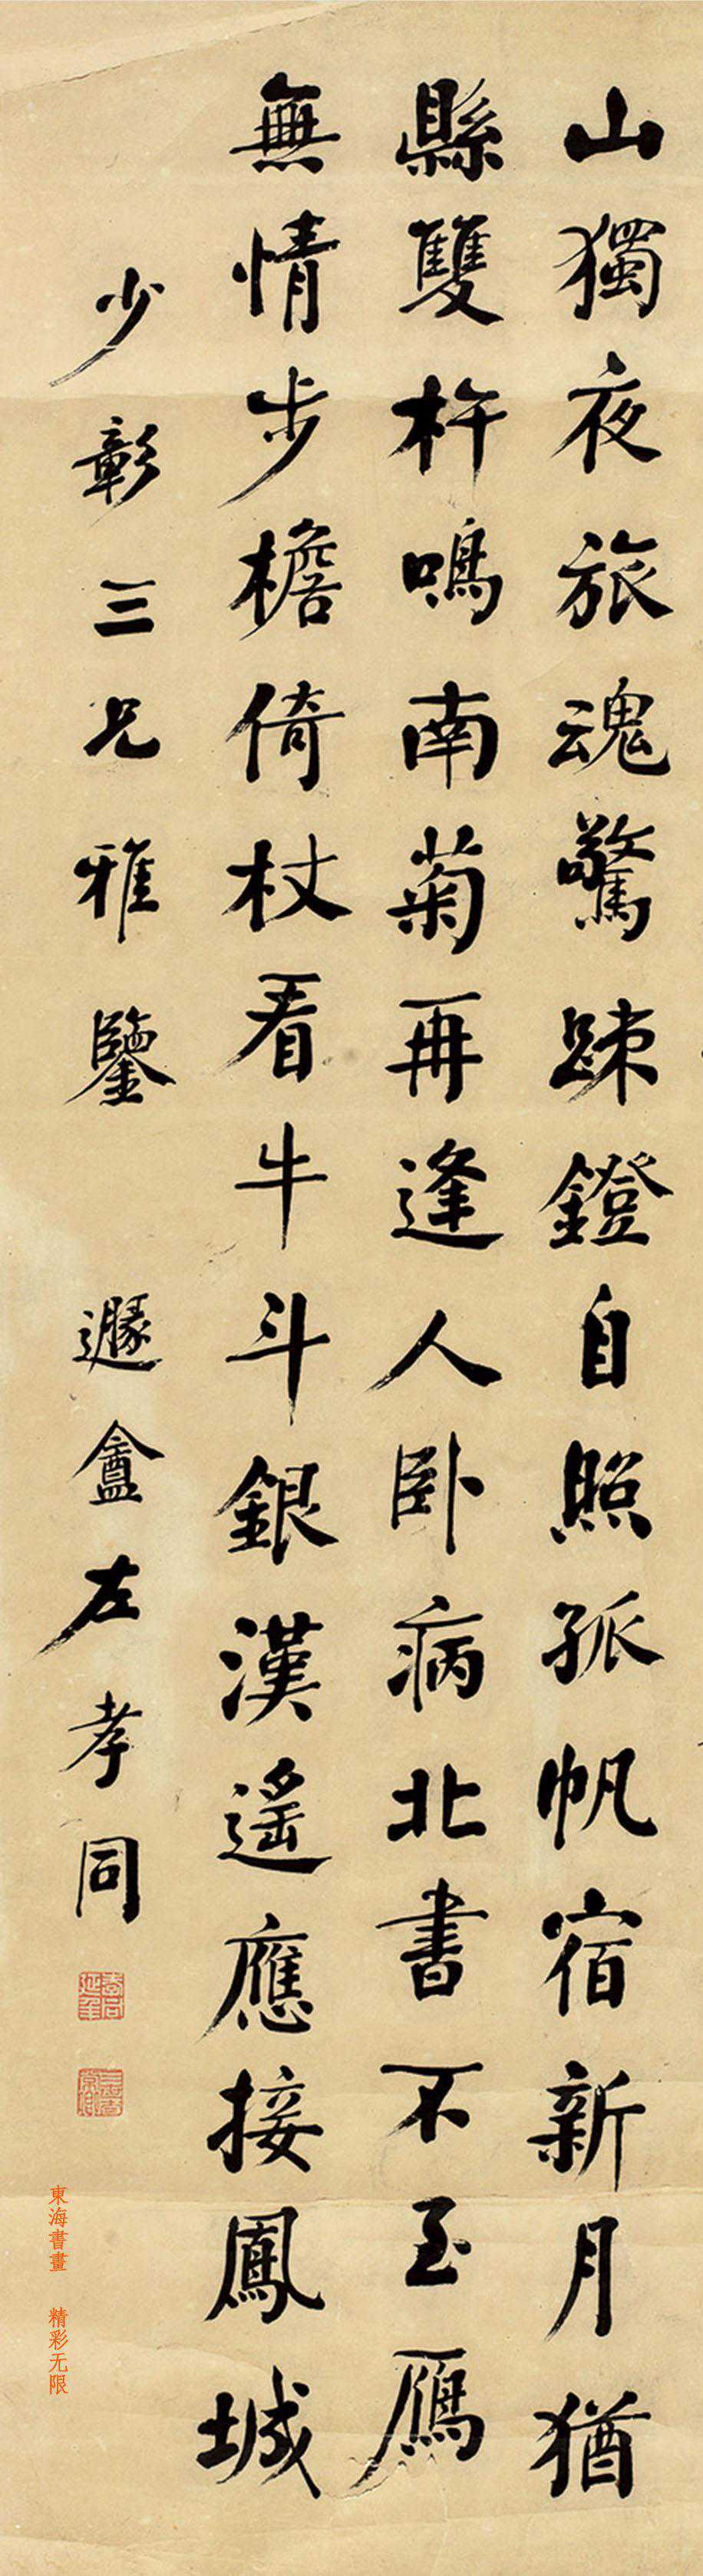 山獨夜旅魂驚踈鐙自照孤帆宿新月猶
縣雙杵鳴南菊再逢人卧病北書不至雁
無情步檐倚杖看牛斗銀漢遙應接鳳城
少彰三兄雅鑒 遯盦左孝同
東海書畫 精彩无限